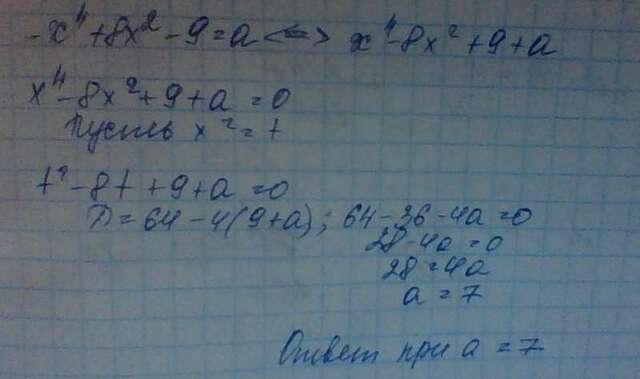 -x⁴+8x²-9=a<=>x⁴-8x²+9+a
x⁴-8x²+9+a=0
Пусть x²=t
t²-8t+9+a=0
D=64-4(9+a); 64-36-4a=0
28-4a=0
28=4a
a=7
Ответ при a=7